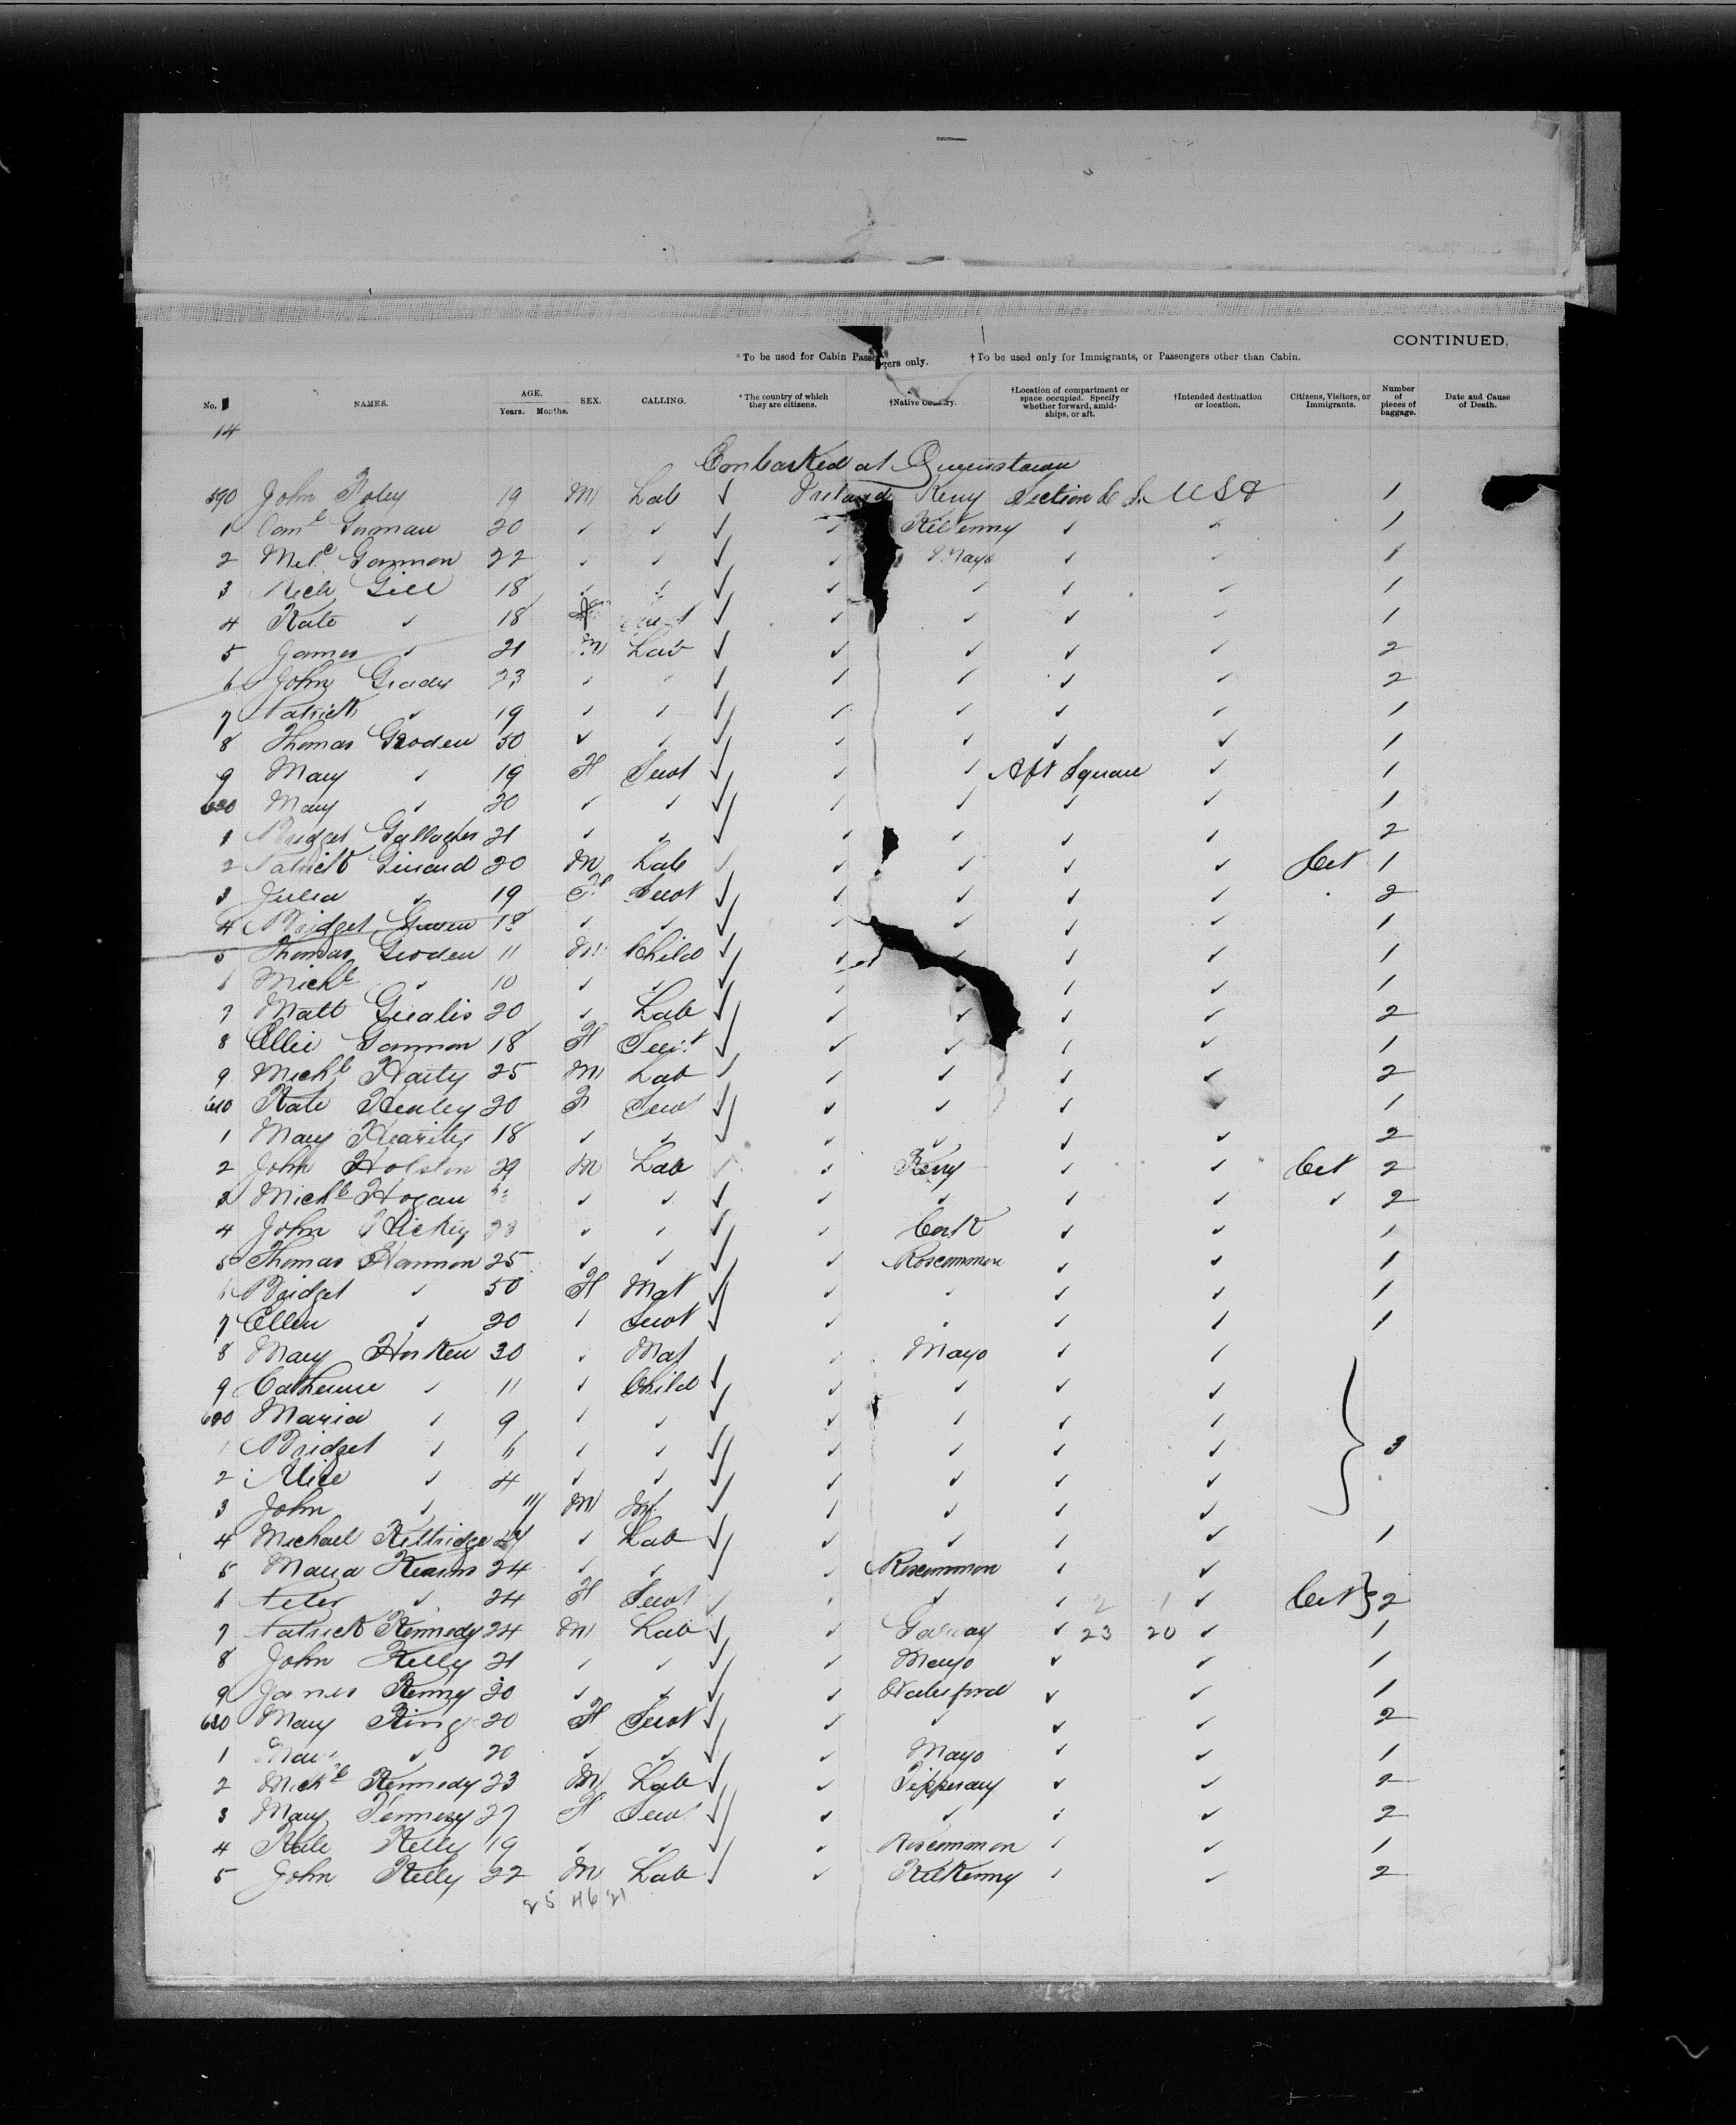 CONTINUED.
*To be used for Cabin Passengers only. †To be used only for Immigrants, or Passengers other than Cabin.
No. NAMES. AGE. Years. Months. SEX. CALLING. *The country of which they are citizens. †Native Country. †Location of compartment or space occupied. Specify whether forward, amidships, or aft. †Intended destination or location. Citizens, Visitors, or Immigrants. Number of pieces of baggage. Date and Cause of Death.
14
Embarked at Queenstown
590 John Foley 19 M Lab ✓ Ireland Kerry Section USA 1
1 20 ✓ ✓ ✓ ✓ Kilkenny ✓ ✓ 1
2 Gammon 22 ✓ ✓ ✓ ✓ Mayo ✓ ✓ 1
3 Gill 18 ✓ ✓ ✓ ✓ ✓ ✓ ✓ 1
4 Kate ✓ 18 ✓ ✓ ✓ ✓ ✓ 1
5 James ✓ 21 M Lab ✓ ✓ ✓ ✓ ✓ 2
6 John Grady 23 ✓ ✓ ✓ ✓ ✓ ✓ ✓ 2
7 Patrick ✓ 19 ✓ ✓ ✓ ✓ ✓ ✓ ✓ 1
8 Thomas Groden 50 ✓ ✓ ✓ ✓ ✓ ✓ ✓ 1
9 Mary ✓ 19 F Servt ✓ ✓ ✓ Aft Square ✓ 1
600 Mary ✓ 20 ✓ ✓ ✓ ✓ ✓ ✓ ✓ 1
1 Bridget Gallagher 21 ✓ ✓ ✓ ✓ ✓ ✓ ✓ 2
2 Patrick 20 M Lab ✓ ✓ ✓ ✓ ✓ Cit 1
3 Julia ✓ 19 F Servt ✓ ✓ ✓ ✓ ✓ 2
4 Bridget 18 ✓ ✓ ✓ ✓ ✓ ✓ 1
5 Thomas Groden 11 M Child ✓ ✓ ✓ ✓ 1
6 Michl ✓ 10 ✓ ✓ ✓ ✓ ✓ ✓ ✓ 1
7 Matt 20 ✓ Lab ✓ ✓ ✓ ✓ ✓ 2
8 Ellie Gammon 18 F Servt ✓ ✓ ✓ ✓ ✓ 1
9 Michl Harty 25 M Lab ✓ ✓ ✓ ✓ ✓ 2
610 Kate Henley 20 F Servt ✓ ✓ ✓ ✓ ✓ 1
1 Mary 18 ✓ ✓ ✓ ✓ ✓ ✓ ✓ 2
2 John Holsten 29 M Lab ✓ ✓ Kerry ✓ ✓ Cit 2
3 Michl Hogan ✓ ✓ ✓ ✓ ✓ ✓ ✓ ✓ 2
4 John Hickey ✓ ✓ ✓ ✓ Cork ✓ ✓ 1
5 Thomas Hannon 25 ✓ ✓ ✓ ✓ Roscommon ✓ ✓ 1
6 Bridget ✓ 50 F Mat ✓ ✓ ✓ ✓ ✓ 1
7 Ellen ✓ 20 ✓ Servt ✓ ✓ ✓ ✓ ✓ 1
8 Mary 30 ✓ Mat ✓ ✓ Mayo ✓ ✓
9 Catherine ✓ 11 ✓ Child ✓ ✓ ✓ ✓ ✓
620 Maria ✓ 9 ✓ ✓ ✓ ✓ ✓ ✓ ✓
1 Bridget ✓ 6 ✓ ✓ ✓ ✓ ✓ ✓ ✓ 3
2 Alice ✓ 4 ✓ ✓ ✓ ✓ ✓ ✓ ✓
3 John ✓ 11 M ✓ ✓ ✓ ✓ ✓
4 Michael ✓ Lab ✓ ✓ ✓ ✓ ✓ 1
5 Maria Kearns 24 ✓ ✓ ✓ ✓ Roscommon ✓ ✓
6 Peter ✓ 24 F Servt ✓ ✓ ✓ ✓ 2 1 ✓ Cit 2
7 Patrick Kennedy 24 M Lab ✓ ✓ Galway ✓ 23 20 ✓ 1
8 John Kelly 21 ✓ ✓ ✓ ✓ Mayo ✓ ✓ 1
9 James Kenny 20 ✓ ✓ ✓ ✓ Waterford ✓ ✓ 1
630 Mary King 20 F Servt ✓ ✓ ✓ ✓ ✓ 2
1 Mary ✓ 20 ✓ ✓ ✓ ✓ Mayo ✓ ✓ 1
2 Michl Kennedy 23 M Lab ✓ ✓ Tipperary ✓ ✓ 2
3 Mary 27 F Servt ✓ ✓ ✓ ✓ ✓ 2
4 Kate Kelly 19 ✓ ✓ ✓ ✓ Roscommon ✓ ✓ 1
5 John Kelly 22 M Lab ✓ ✓ Kilkenny ✓ ✓ 2
25 46 21